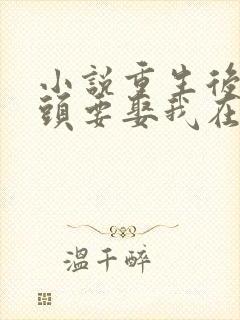 小說重生後
頭要娶我在
溫千醉